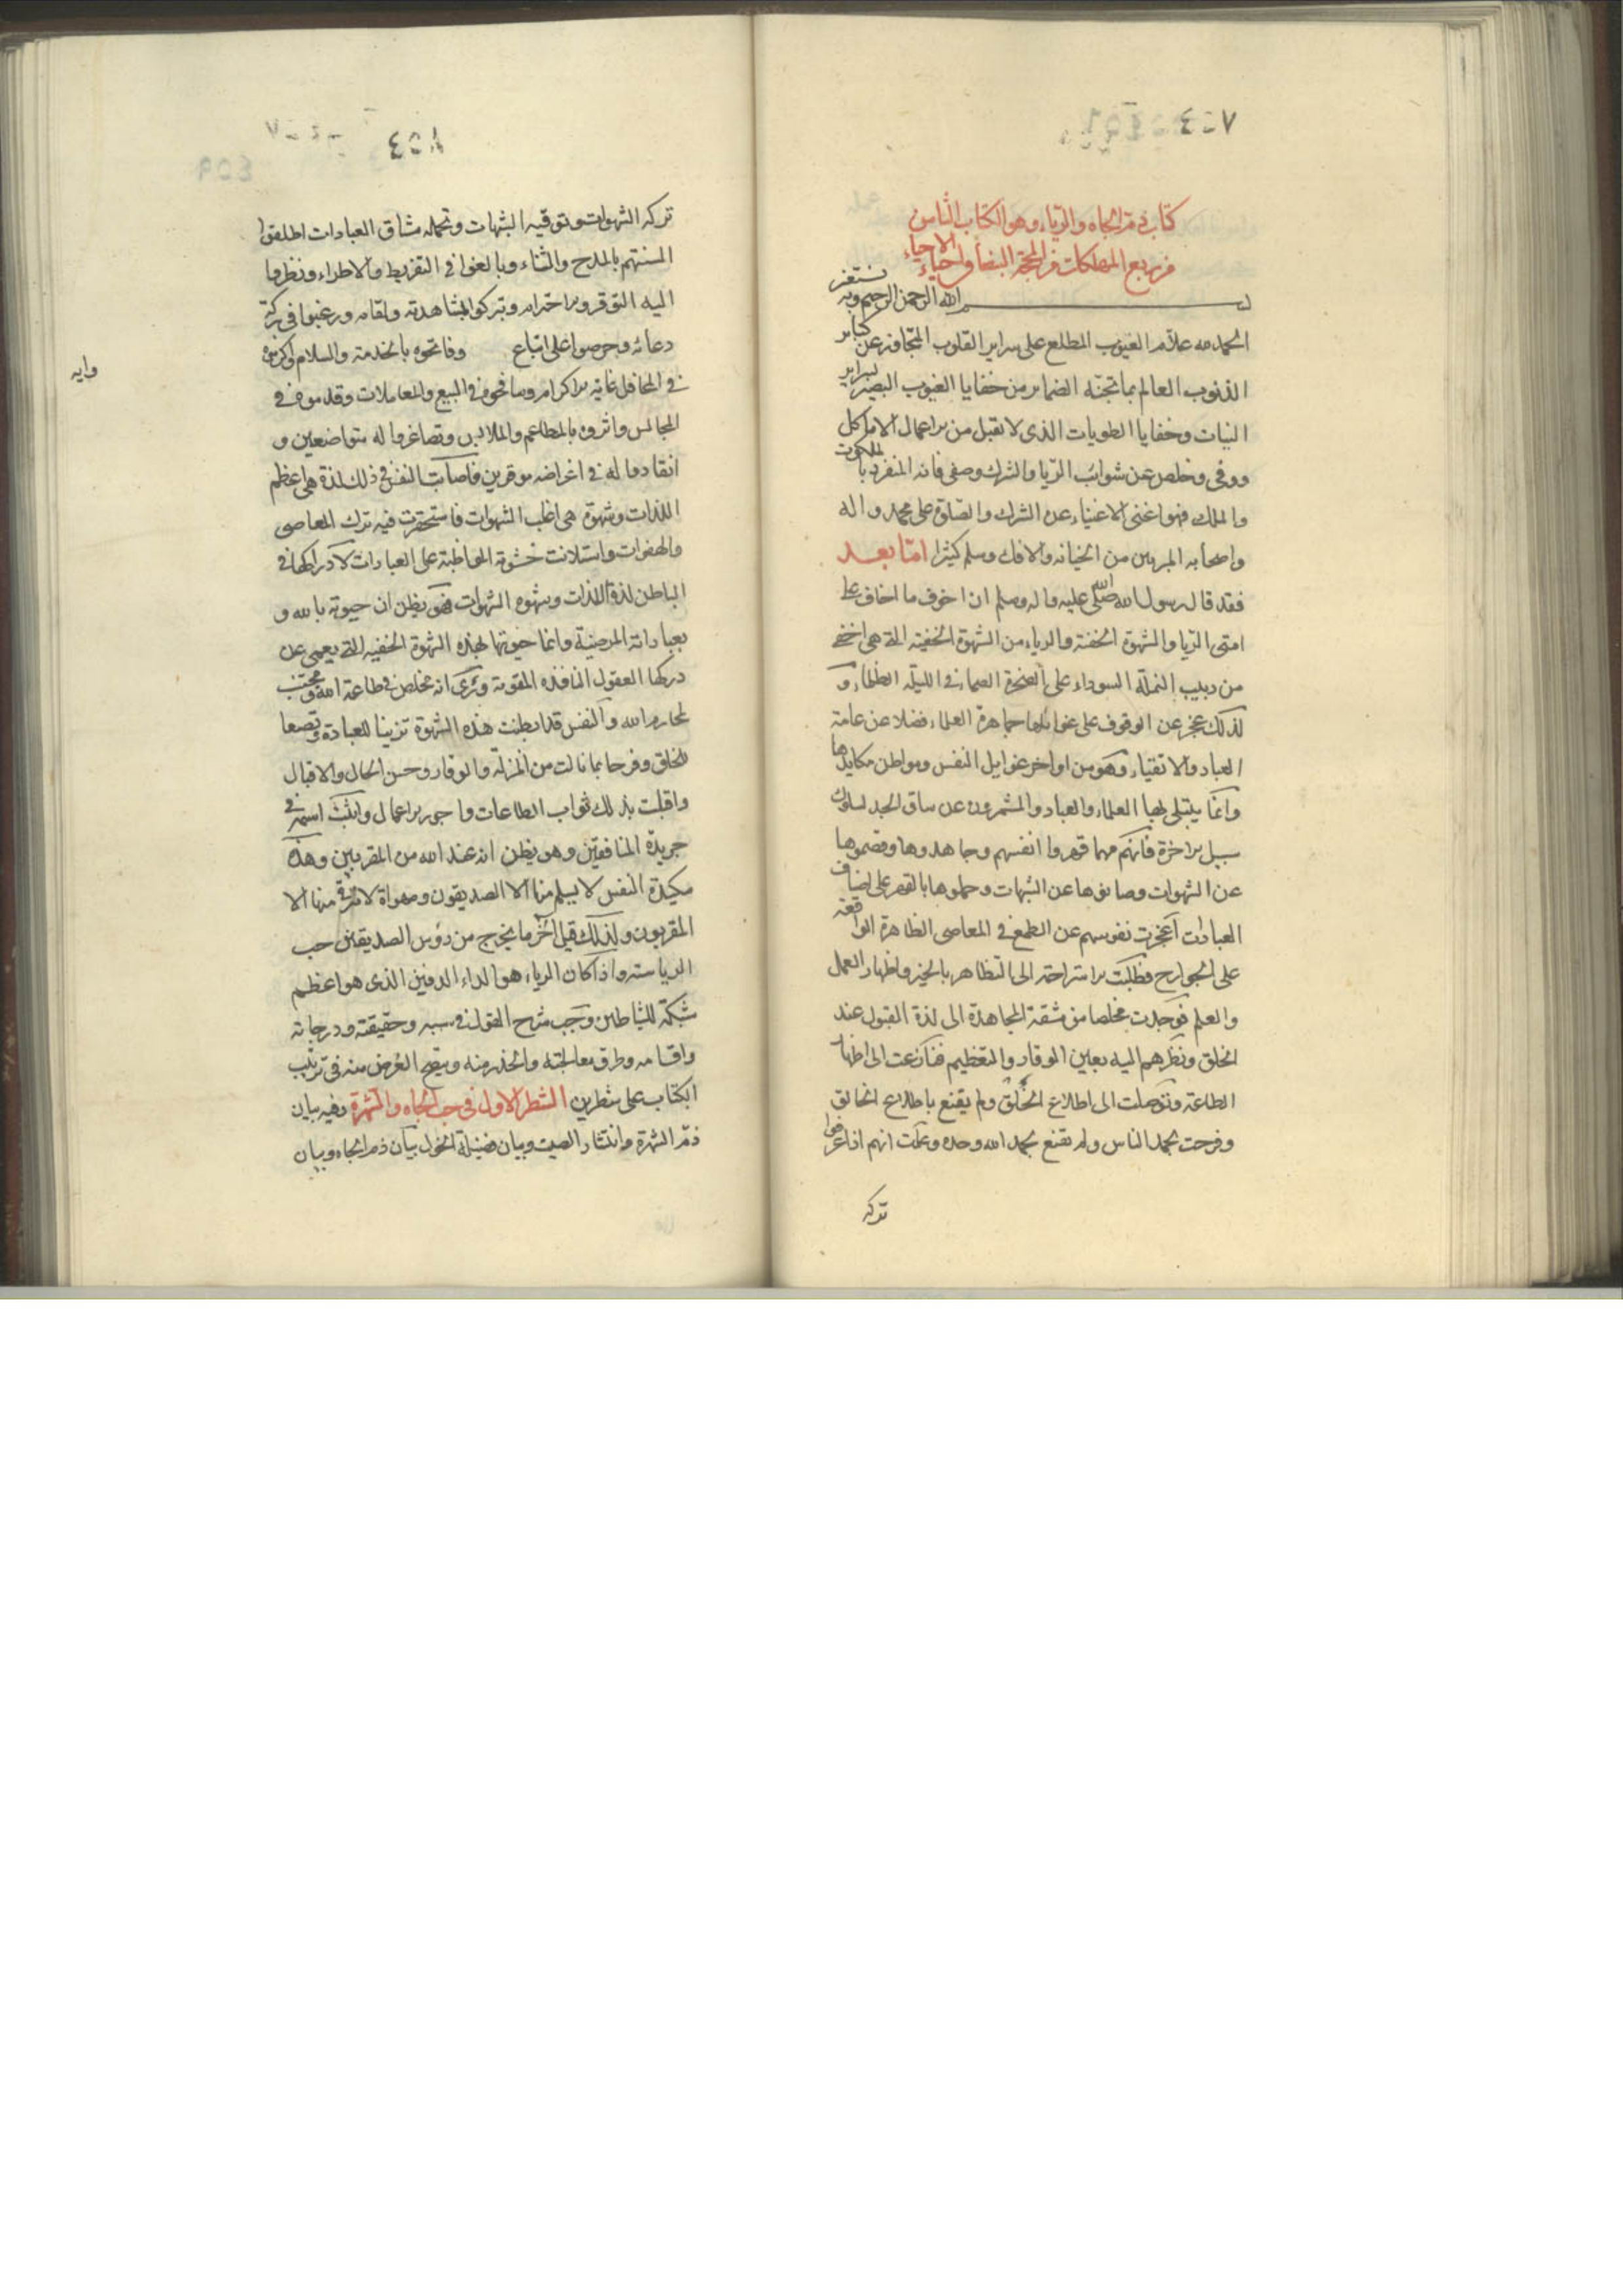 ٤٠٧
كتاب ذم الجاه والرياء وهو الكتاب الثامن
من ربع المهلكات من المحجة البيضاء في احياء الاحياء
بسم الله الرحمن الرحيم وبه نستعين
الحمد لله علام الغيوب المطلع على سراير القلوب المتجاوز عن كباير
الذنوب العالم بما تجنه الضماير من خفايا الغيوب البصير بسراير
النيات وخفايا الطويات الذي لا يقبل من الاعمال الا ما كمل
ووفى وخلص عن شوائب الريا والشرك وصفى فانه المنفرد بالملكوت
والملك فهو اغنى الاغنياء عن الشرك والصلوة على محمد واله
واصحابه المبرءين من الخيانه والافك وسلم كثيرا اما بعد
فقد قال رسول الله صلى الله عليه واله وسلم ان اخوف ما اخاف على
امتى الريا والشهوة الخفية والرياء من الشهوة الخفية التي هي اخفى
من دبيب النملة السوداء على الصخرة الصماء في الليلة الظلماء و
لذلك عجز عن الوقوف على غوائلها جماهرة العلماء فضلا عن عامة
العباد والاتقياء وهو من اواخر غوايل النفس وبواطن مكايدها
وانما يبتلى بها العلماء والعباد والمشمرون عن ساق الجد لسلوك
سبيل الاخرة فانهم مهما قهروا انفسهم وجاهدوها وفطموها
عن الشهوات وصانوها عن الشبهات وحملوها بالقهر على اصناف
العبادات اعجزت نفوسهم عن الطمع في المعاصى الظاهرة الواقعة
على الجوارح فطلبت الاستراحة الى التظاهر بالخير واظهار العمل
والعلم فوجدت مخلصا من مشقة المجاهدة الى لذة القبول عند
الخلق ونظرهم اليه بعين الوقار والتعظيم فنازعت الى اظهار
الطاعة وتوصلت الى اطلاع الخلق ولم يقنع باطلاع الخالق
وفرحت بحمد الناس ولم تقنع بحمد الله وحده وعلمت انهم اذا عرفوا
تركه
٤٠٨
تركه الشهوات وتوقيه الشبهات وتحمله مشاق العبادات اطلقوا
السنتهم بالمدح والثناء وبالغوا في التقريظ والاطراء ونظروا
اليه التوقر والاحترام وتبركوا بمشاهدته ولقائه ورغبوا في بركة
دعائه وحرصوا على اتباع وفاتحوه بالخدمة والسلام واكرموه
وايه
في المحافل غاية الاكرام وسامحوه في البيع والمعاملات وقدموه في
المجالس واثروه بالمطاعم والملابس وتصاغروا له متواضعين و
انقادوا له في اغراضه موقرين فاصابت النفس في ذلك لذة هي اعظم
اللذات وشهوة هي اغلب الشهوات فاستحقرت فيه ترك المعاصى
والهفوات واستلانت خشونة المواظبة على العبادات لادراكها في
الباطن لذة اللذات وشهوه الشهوات فهو يظن ان حيوته بالله و
بعباداته المرضية وانما حيوتها بهذه الشهوة الخفيه التي يعمى عن
دركها العقول النافذه القوية ويرى انه مخلص في طاعة الله ومجتنب
لمحارم الله والنفس قد ابطنت هذه الشهوة تزيينا للعبادة وتصنعا
للخلق وفرحا بما نالت من المنزلة والوقار وحسن الحال والاقبال
واقبلت بذلك ثواب الطاعات واجور الاعمال واثبت اسمه في
جريدة المنافقين وهو يظن انه عند الله من المقربين وهذه
مكيدة النفس لا يسلم منها الا الصديقون ومهواة لا يرقى منها الا
المقربون ولذلك قيل اخر ما يخرج من رؤس الصديقين حب
الرياسة واذا كان الرياء هو الداء الدفين الذي هو اعظم
شبكة للشياطين وجب شرح القول في سببه وحقيقته ودرجاته
واقسامه وطرق معالجته والحذر منه ويتضح الغرض منه في ترتيب
الكتاب على شطرين الشطر الاول في حب الجاه والشهرة وفيه بيان
ذم الشهرة وانتشار الصيت وبيان فضيلة الخمول بيان ذم الجاه وبيان